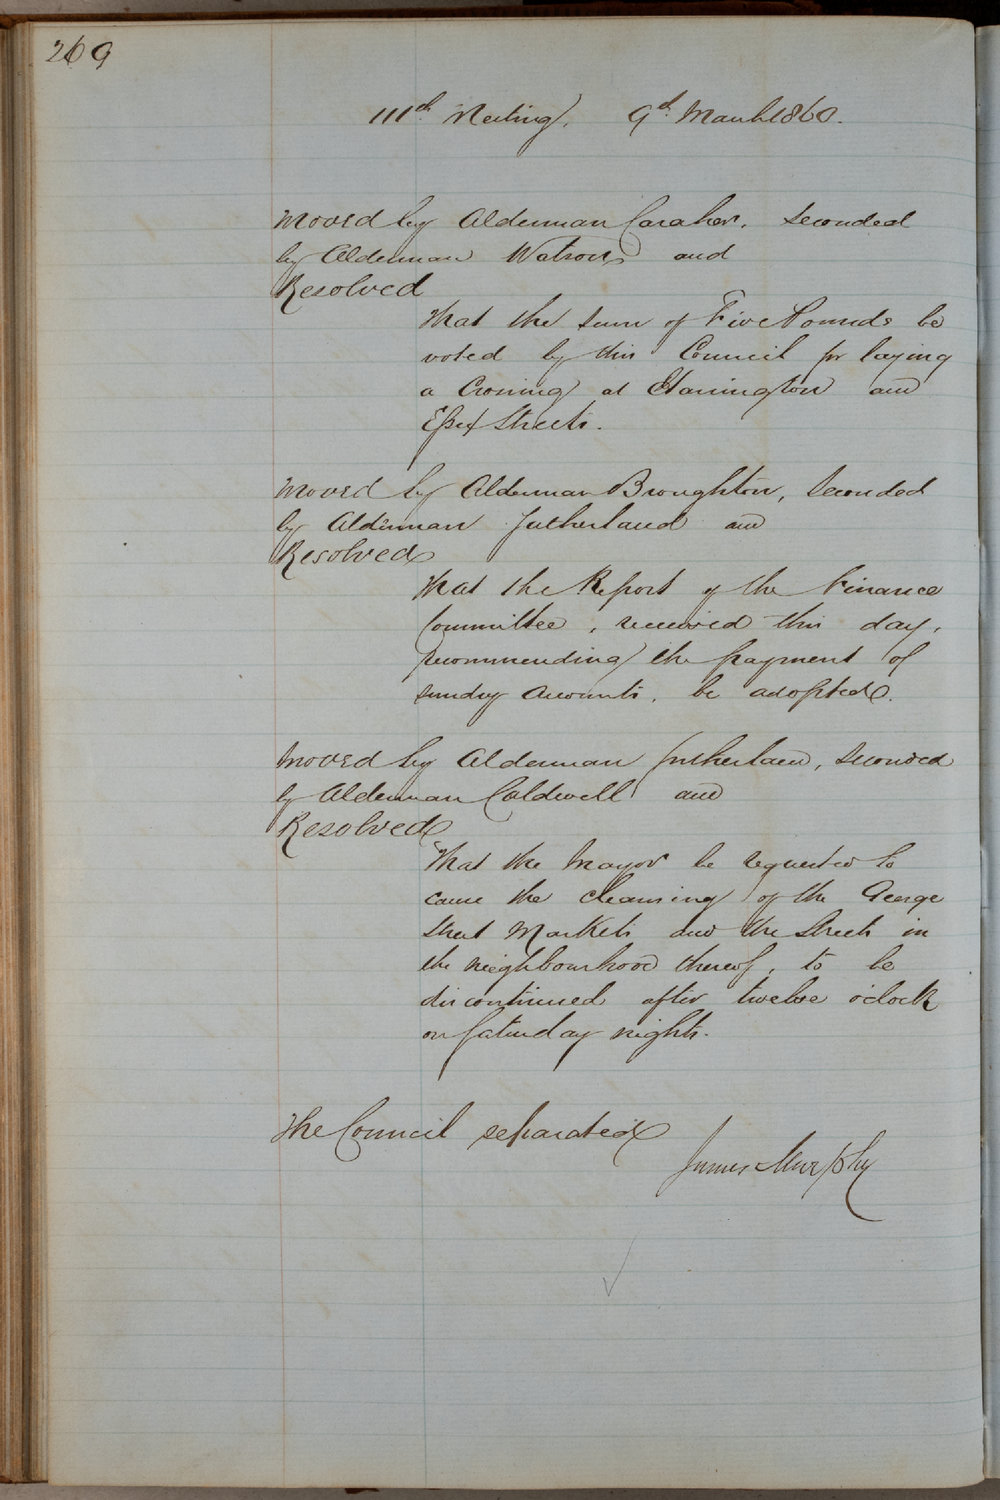 269
111th Meeting. 9th March 1860.
Moved by Alderman Caraher. Seconded
by Alderman Watson and
Resolved
That the sum of Five Pounds be
voted by this Council for laying
a Crossing at Harrington and
Essex Streets.
Moved by Alderman Broughton, Seconded
by Alderman Sutherland and
Resolved
That the Report of the Finance
Committee, received this day,
recommending the payment of
sundry Accounts, be adopted.
Moved by Alderman Sutherland, Seconded
by Alderman Caldwell and
Resolved
That the Mayor be requested to
cause the cleansing of the George
Street Markets and the Streets in
the neighbourhood thereof, to be
discontinued after twelve o'clock
on Saturday nights.
The Council separated
James Murphy